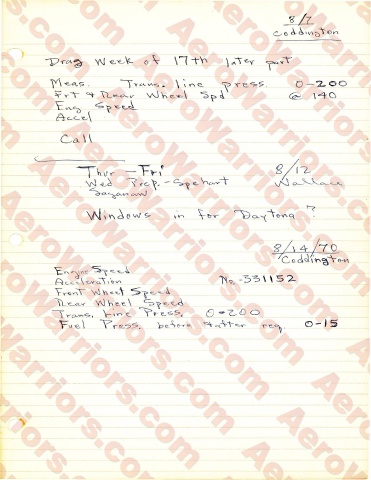 8/7
Coddington
Drag Week of 17th later part
Meas. Trans. line press. 0-200
Frt & Rear Wheel Spd @ 140
Eng Speed
Accel
Call
Thur - Fri 8/12
Wed Prep. - Spehart Wallace
Saganaw
Windows in for Daytona ?
8/14/70
Coddington
Engine Speed
Acceleration No. 331152
Front Wheel Speed
Rear Wheel Speed
Trans. Line Press. 0-200
Fuel Press. before + after reg 0-15
AeroWarriors.com